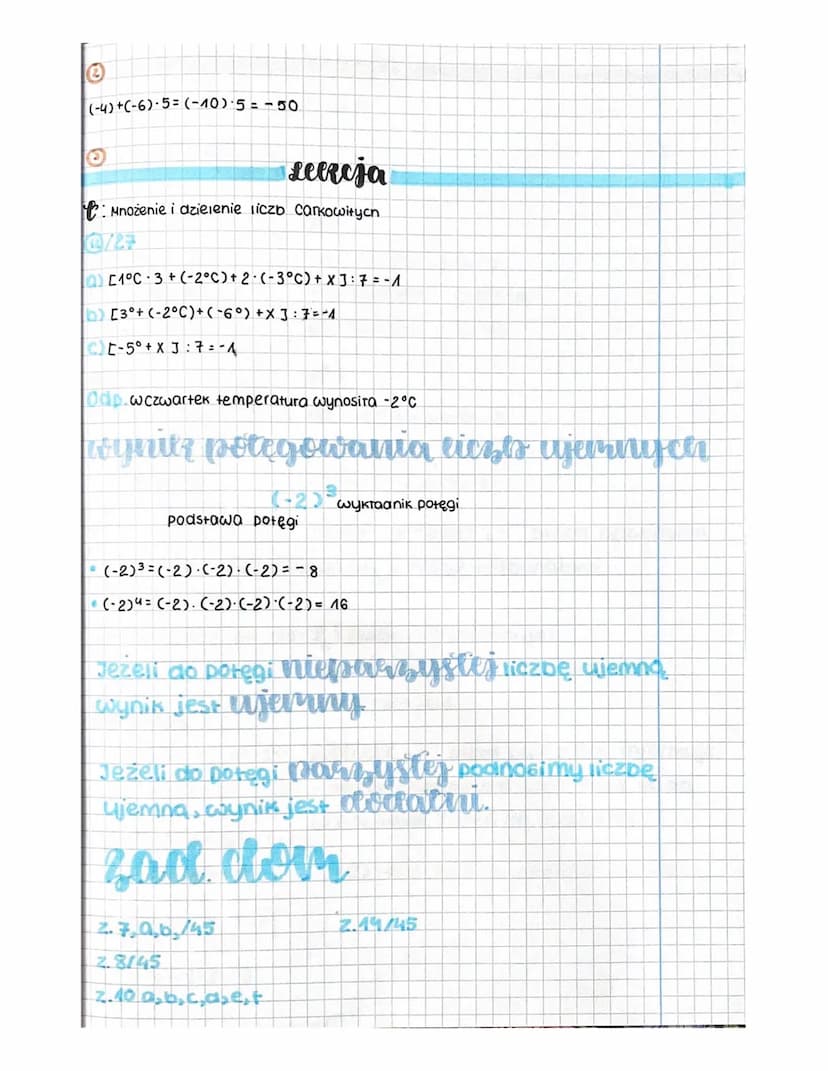 2
(-4)+(-6)·5=(-10)·5=-50
lekcja
t: Mnożenie i dzielenie liczb całkowitych
/27
a) [1°C·3+(-2°C)+2·(-3°C)+X]:7=-1
b) [3°+(-2°C)+(-6°)+X]:7=-1
c) [-5°+X]:7=-1
Odp. w czwartek temperatura wynosiła -2°C
wynik potęgowania liczb ujemnych
(-2)³ wykładnik potęgi
podstawa potęgi
• (-2)³=(-2)·(-2)·(-2)=-8
• (-2)⁴=(-2)·(-2)·(-2)·(-2)=16
Jeżeli do potęgi nieparzystej liczbę ujemną
wynik jest ujemny
Jeżeli do potęgi parzystej podnosimy liczbę
ujemną, wynik jest dodatni.
zad. dom
z.7,a,b,/45 z.14/45
z.8/45
z.10 a,b,c,d,e,f